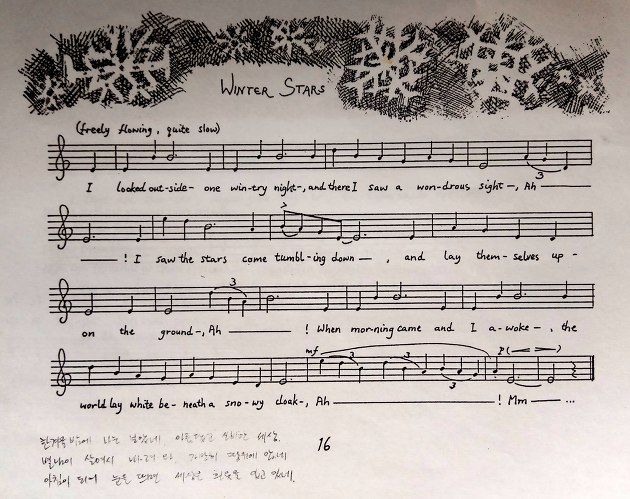 WINTER STARS
(freely flowing, quite slow)
I looked out-side- one win-try night-, and there I saw a won-drous sight-, Ah
3
! I saw the stars come tumbl-ing down-, and lay them-selves up-
3
on the ground-, Ah ! When mor-ning came and I a-woke-, the
mf 3 3 3 p(< >)
world lay white be-neath a sno-wy cloak-, Ah ! Mm ...
16
한겨울밤에 나는 보았네 아름답고 신비한 세상.
별님이 살며시 내려와 땅위에 앉네
아침이 되어 눈을 뜨면 세상은 입고 있네.